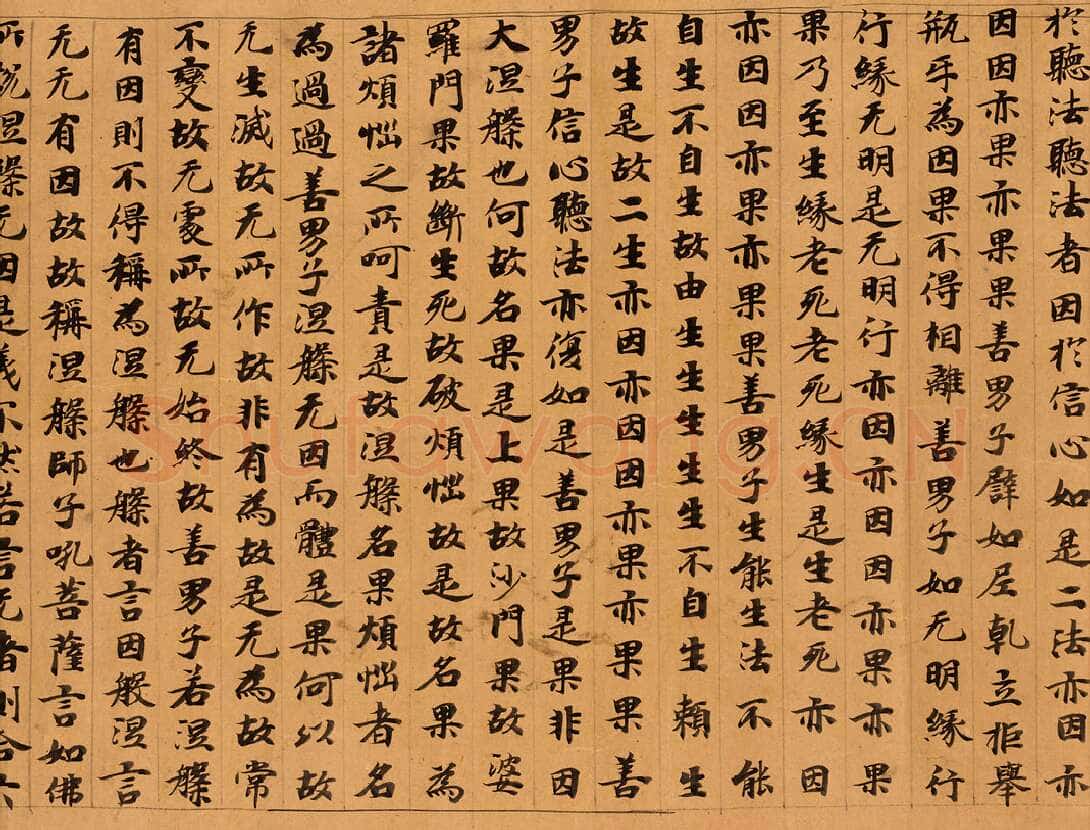 於聽法聽法者因於信心如是二法亦因亦
因因亦果亦果果善男子辟如尼乾立拒舉
瓶手為因果不得相離善男子如无明緣行
行緣无明是无明行亦因亦因因亦果亦果
果乃至生緣老死老死緣生是生老死亦因
亦因因亦果亦果果善男子生能生法不能
自生不自生故由生生生生生不自生賴生
故生是故二生亦因亦因因亦果亦果果善
男子信心聽法亦復如是善男子是果非因
大涅槃也何故名果是上果故沙門果故婆
羅門果故斷生死故破煩惱故是故名果為
諸煩惱之所呵責是故涅槃名果煩惱者名
為過過善男子涅槃无因而體是果何以故
无生滅故无所作故非有為故是无為故常
不變故无處所故无始終故善男子若涅槃
有因則不得稱為涅槃也槃者言因般涅言
无无有因故故稱涅槃師子吼菩薩言如佛
所說涅槃无因是義不然若言无者則合六
Shufawang.CN